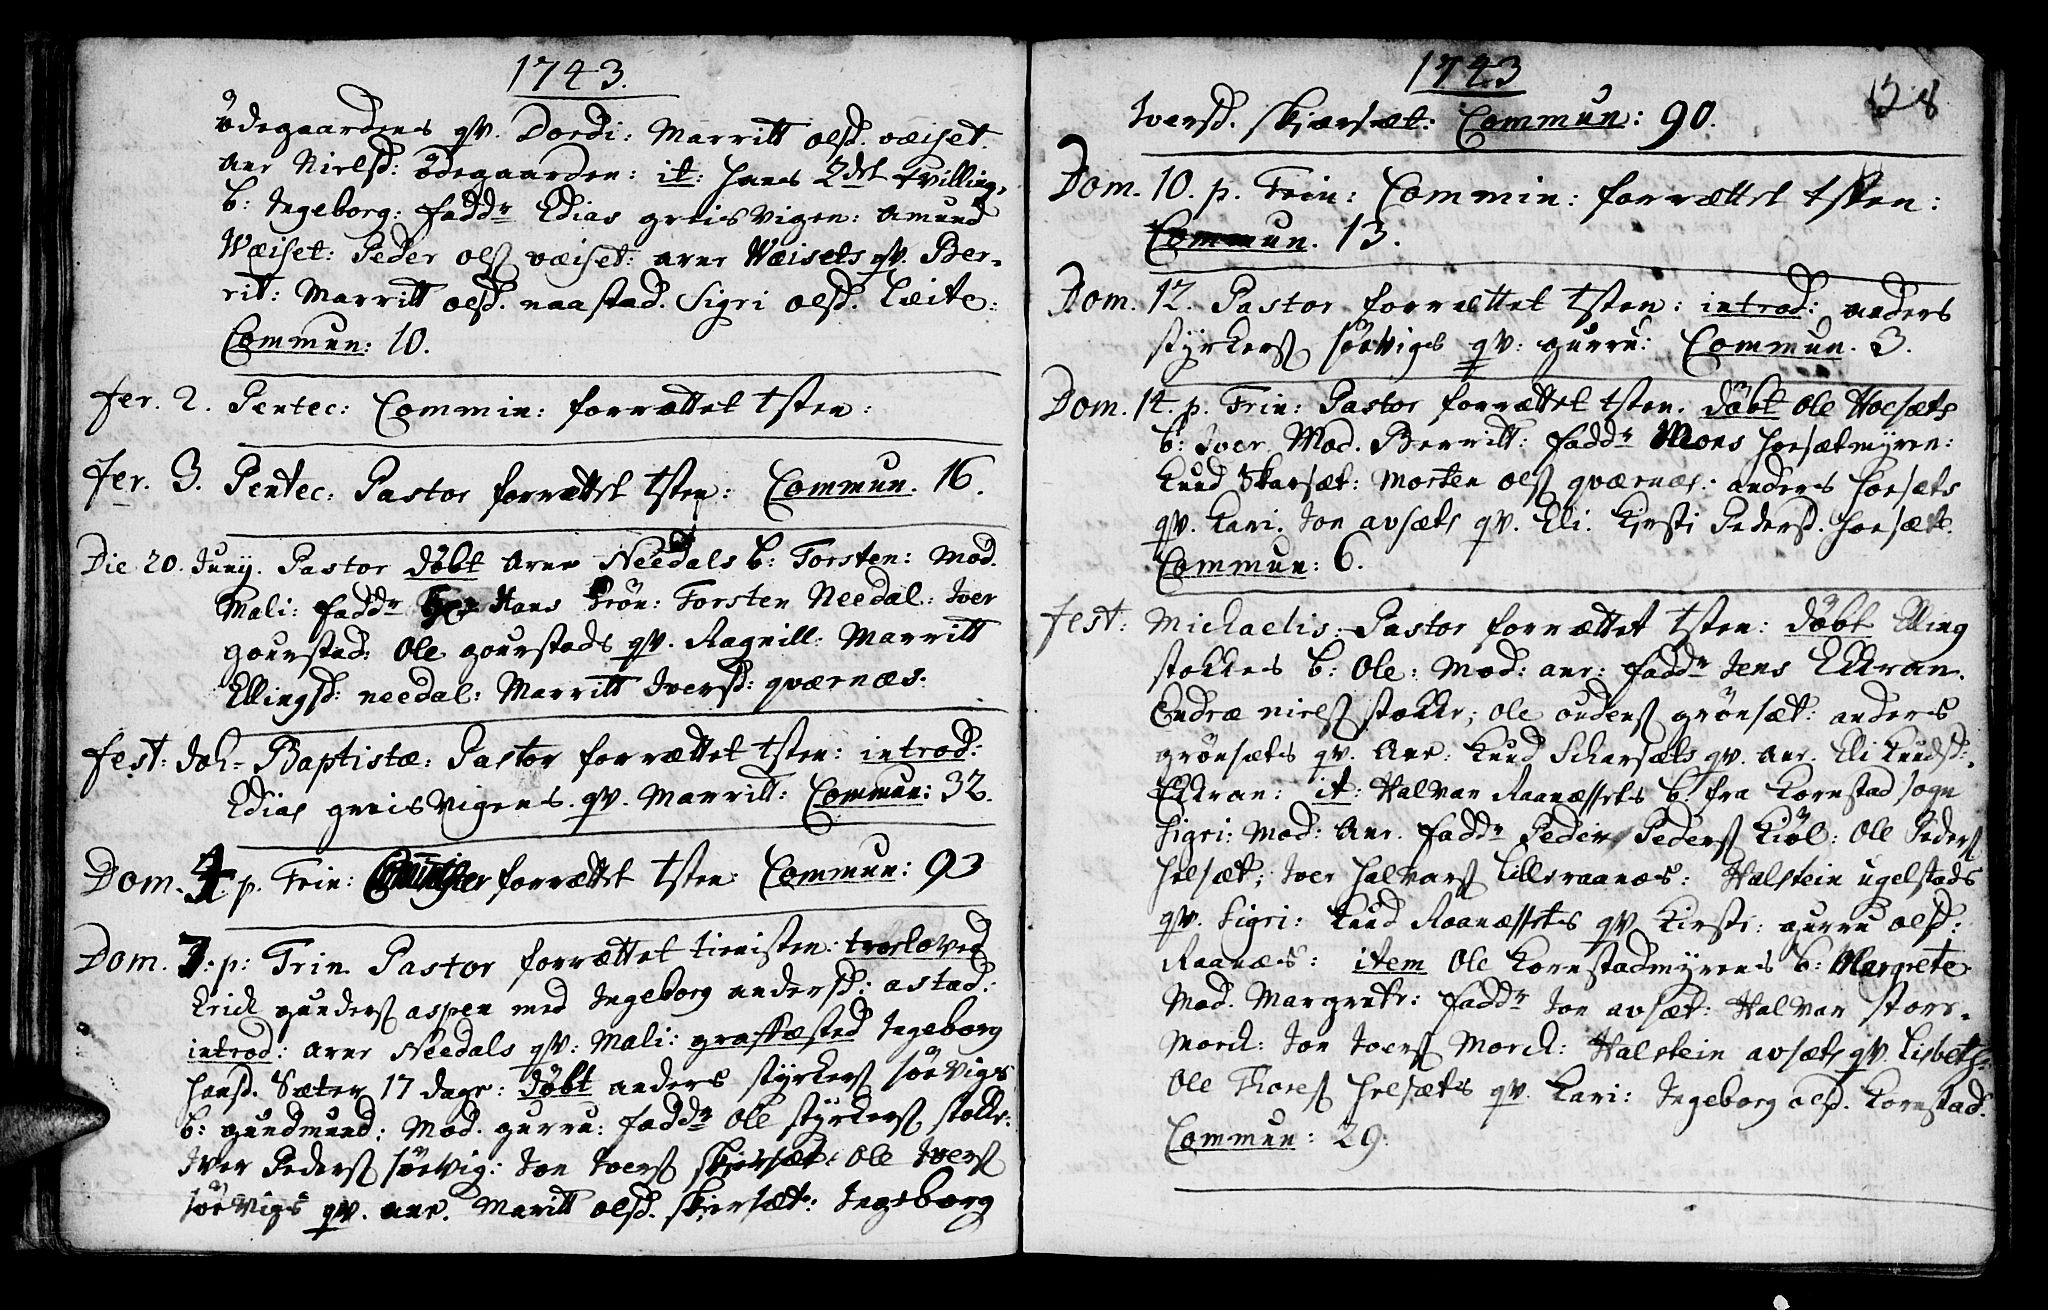 1743.
ödegaardens qv. Dordi: Marritt olsd. væiset.
Ane Nielsd: ödegaarden: it: hans 2det tvilling,
b: Ingeborg: fadd:r Edias greisvigen: Amund
Wæiset: Peder ols væiset: arne Wæisets qv. Ber-
rit: Marritt olsd. naastad. Sigri olsd. Læite:
Commun: 10.
fer. 2. Pentec: Commin: forrættet tsten:
fer. 3. Pentec: Pastor forrættet tsten: Commun. 16.
Die 20. Junij. Pastor döbt Arne Needals b: Torsten: Mod.
Mali: fadd:r Hans Trön: Torsten Needal: Iver
gourstad: Ole gourstads qv. Ragnill: Marritt
Ellingsd: needal: Marritt Iversd: qværnæs.
fest: Joh- Baptistæ: Pastor forrættet tsten: introd:
Edias greisvigens. qv. Marritt: Commun: 32.
Dom. 4. p. Trin: forrættet tsten: Commun: 93
Dom. 7. p: Trin. Pastor forrættet tienisten: troeloved
Erick gunders aspen med Ingeborg andersd: astad:
introd: arne Needals qv: Mali: graffæsted Ingeborg
hansd. Sæter 17 dage: döbt anders styrkers söevigs
b: gundmund: Mod. gurru: fadd:r Ole styrkers stokke:
Iver Peders söevig: Jon Ivers skiersæt: Ole Ivers
söevigs qv. ane. Maritt olsd. skiersæt: Ingeborg
1743
128
Iversd. skiærsæt: Commun: 90.
Dom. 10. p. Trin: Commin: forrættet tsten:
Commun. 13.
Dom. 12. Pastor forrættet tsten: introd: anders
styrkers söevigs qv: gurru: Commun. 3.
Dom. 14. p. Trin: Pastor forrættet tsten. döbt Ole Hoesæts
b: Iver Mod. Berritt: fadd:r Mons hoesætmyren:
Knud Skarsæt: Morten ols qværnæs: anders hoesæts
qv. Kari. Jon avsæts qv. Eli. Kirsti Pedersd. hoesæt.
Commun: 6.
fest: Michaelis: Pastor forrættet tsten: döbt Elling
stokkes b: Ole: Mod: ane: fadd:r Jens Ekkran.
Endræ niels stokke; ole oudens grönsæt: anders
grönsæts qv. Ane: Knud Scharsæts qv. ane. Eli Knudsd:
Ekkran: it: Halvar Raanæssets b. fra Kornstad sogn
Sigri: Mod: Ane. fadd:r Peder Peders Kiöl: Ole Peders
helsæt; Iver halvars Lilleraanæs: Halstein ugelstads
qv. Sigri: Knud Raanæssets qv. Kirsti: gurru olsd:
Raanæs: item Ole Kornstadmyrens b: Margrete
Mod. Margrete: fadd:r Jon avsæt: Halvar store-
Morck: Jon Ivers Morck: Halstein avsæts qv. Lisbeth:
Ole Tores helsæts qv. Kari: Ingeborg olsd. Kornstad.
Commun: 29.